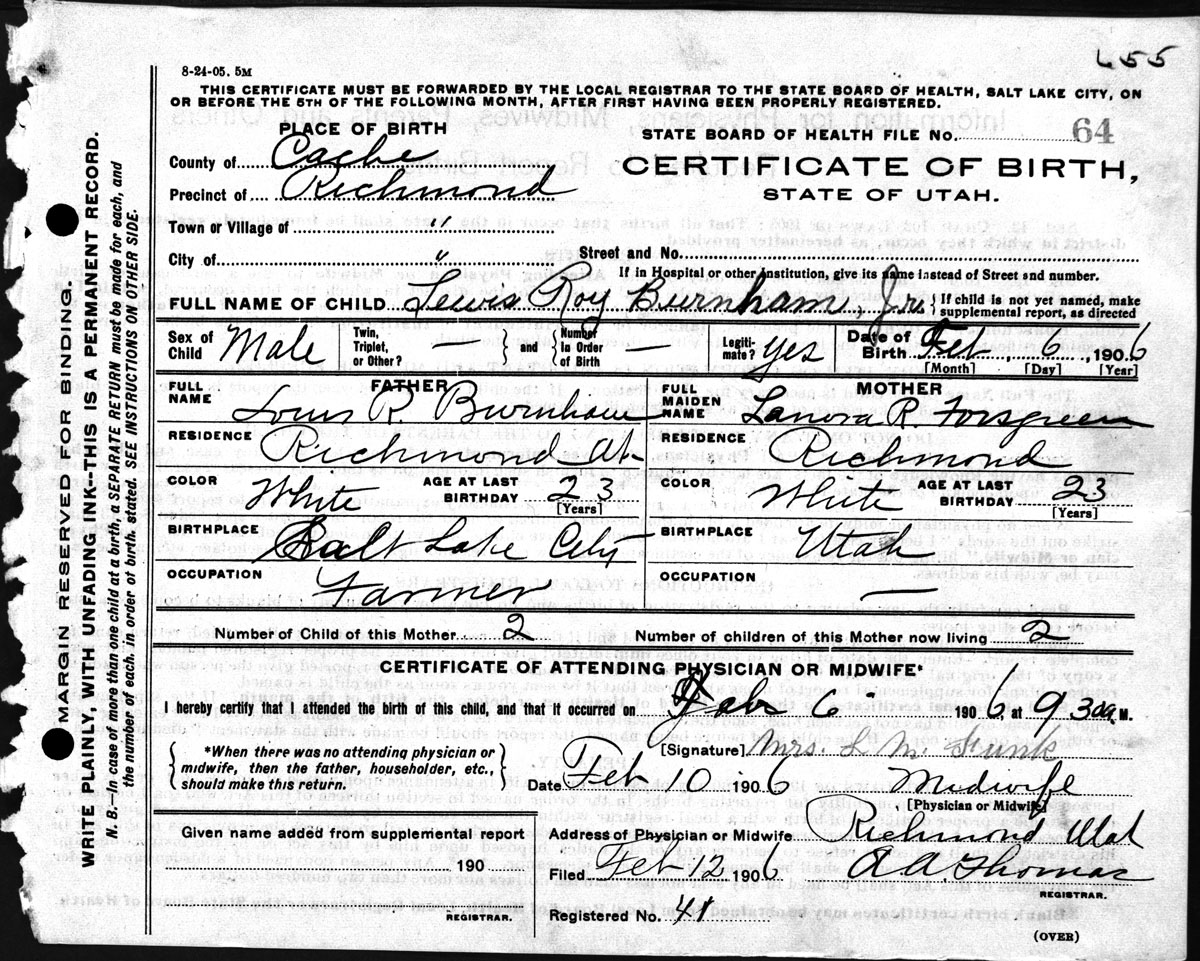 655
8-24-05. 5M
THIS CERTIFICATE MUST BE FORWARDED BY THE LOCAL REGISTRAR TO THE STATE BOARD OF HEALTH, SALT LAKE CITY, ON
OR BEFORE THE 5TH OF THE FOLLOWING MONTH, AFTER FIRST HAVING BEEN PROPERLY REGISTERED.
PLACE OF BIRTH
STATE BOARD OF HEALTH FILE No. 64
County of Cache
CERTIFICATE OF BIRTH,
Precinct of Richmond
STATE OF UTAH.
Town or Village of "
City of " Street and No.
If in Hospital or other Institution, give its name instead of Street and number.
FULL NAME OF CHILD Lewis Roy Burnham, Jr. { If child is not yet named, make supplemental report, as directed
Sex of Child Male Twin, Triplet, or Other? } and { Number in Order of Birth — Legiti- mate? yes Date of Birth Feb 6 1906
[Month] [Day] [Year]
FATHER
MOTHER
FULL NAME Louis R Burnham
FULL MAIDEN NAME Lanora R. Forsgreen
RESIDENCE Richmond Ut
RESIDENCE Richmond
COLOR White AGE AT LAST BIRTHDAY 23 [Years]
COLOR White AGE AT LAST BIRTHDAY 23 [Years]
BIRTHPLACE Salt Lake City
BIRTHPLACE Utah
OCCUPATION Farmer
OCCUPATION —
Number of Child of this Mother 2 Number of children of this Mother now living 2
CERTIFICATE OF ATTENDING PHYSICIAN OR MIDWIFE*
I hereby certify that I attended the birth of this child, and that it occurred on Feb 6 1906, at 9 30 a. M.
{ *When there was no attending physician or midwife, then the father, householder, etc., should make this return. }
[Signature] Mrs. L M. Funk
Date Feb 10 1906 Midwife
[Physician or Midwife]
Given name added from supplemental report
190
REGISTRAR.
Address of Physician or Midwife Richmond Utah
Filed Feb 12 1906 A A. Thomas
REGISTRAR.
Registered No. 41
(OVER)
MARGIN RESERVED FOR BINDING.
WRITE PLAINLY, WITH UNFADING INK--THIS IS A PERMANENT RECORD.
N. B.—In case of more than one child at a birth, a SEPARATE RETURN must be made for each, and
the number of each, in order of birth, stated. SEE INSTRUCTIONS ON OTHER SIDE.